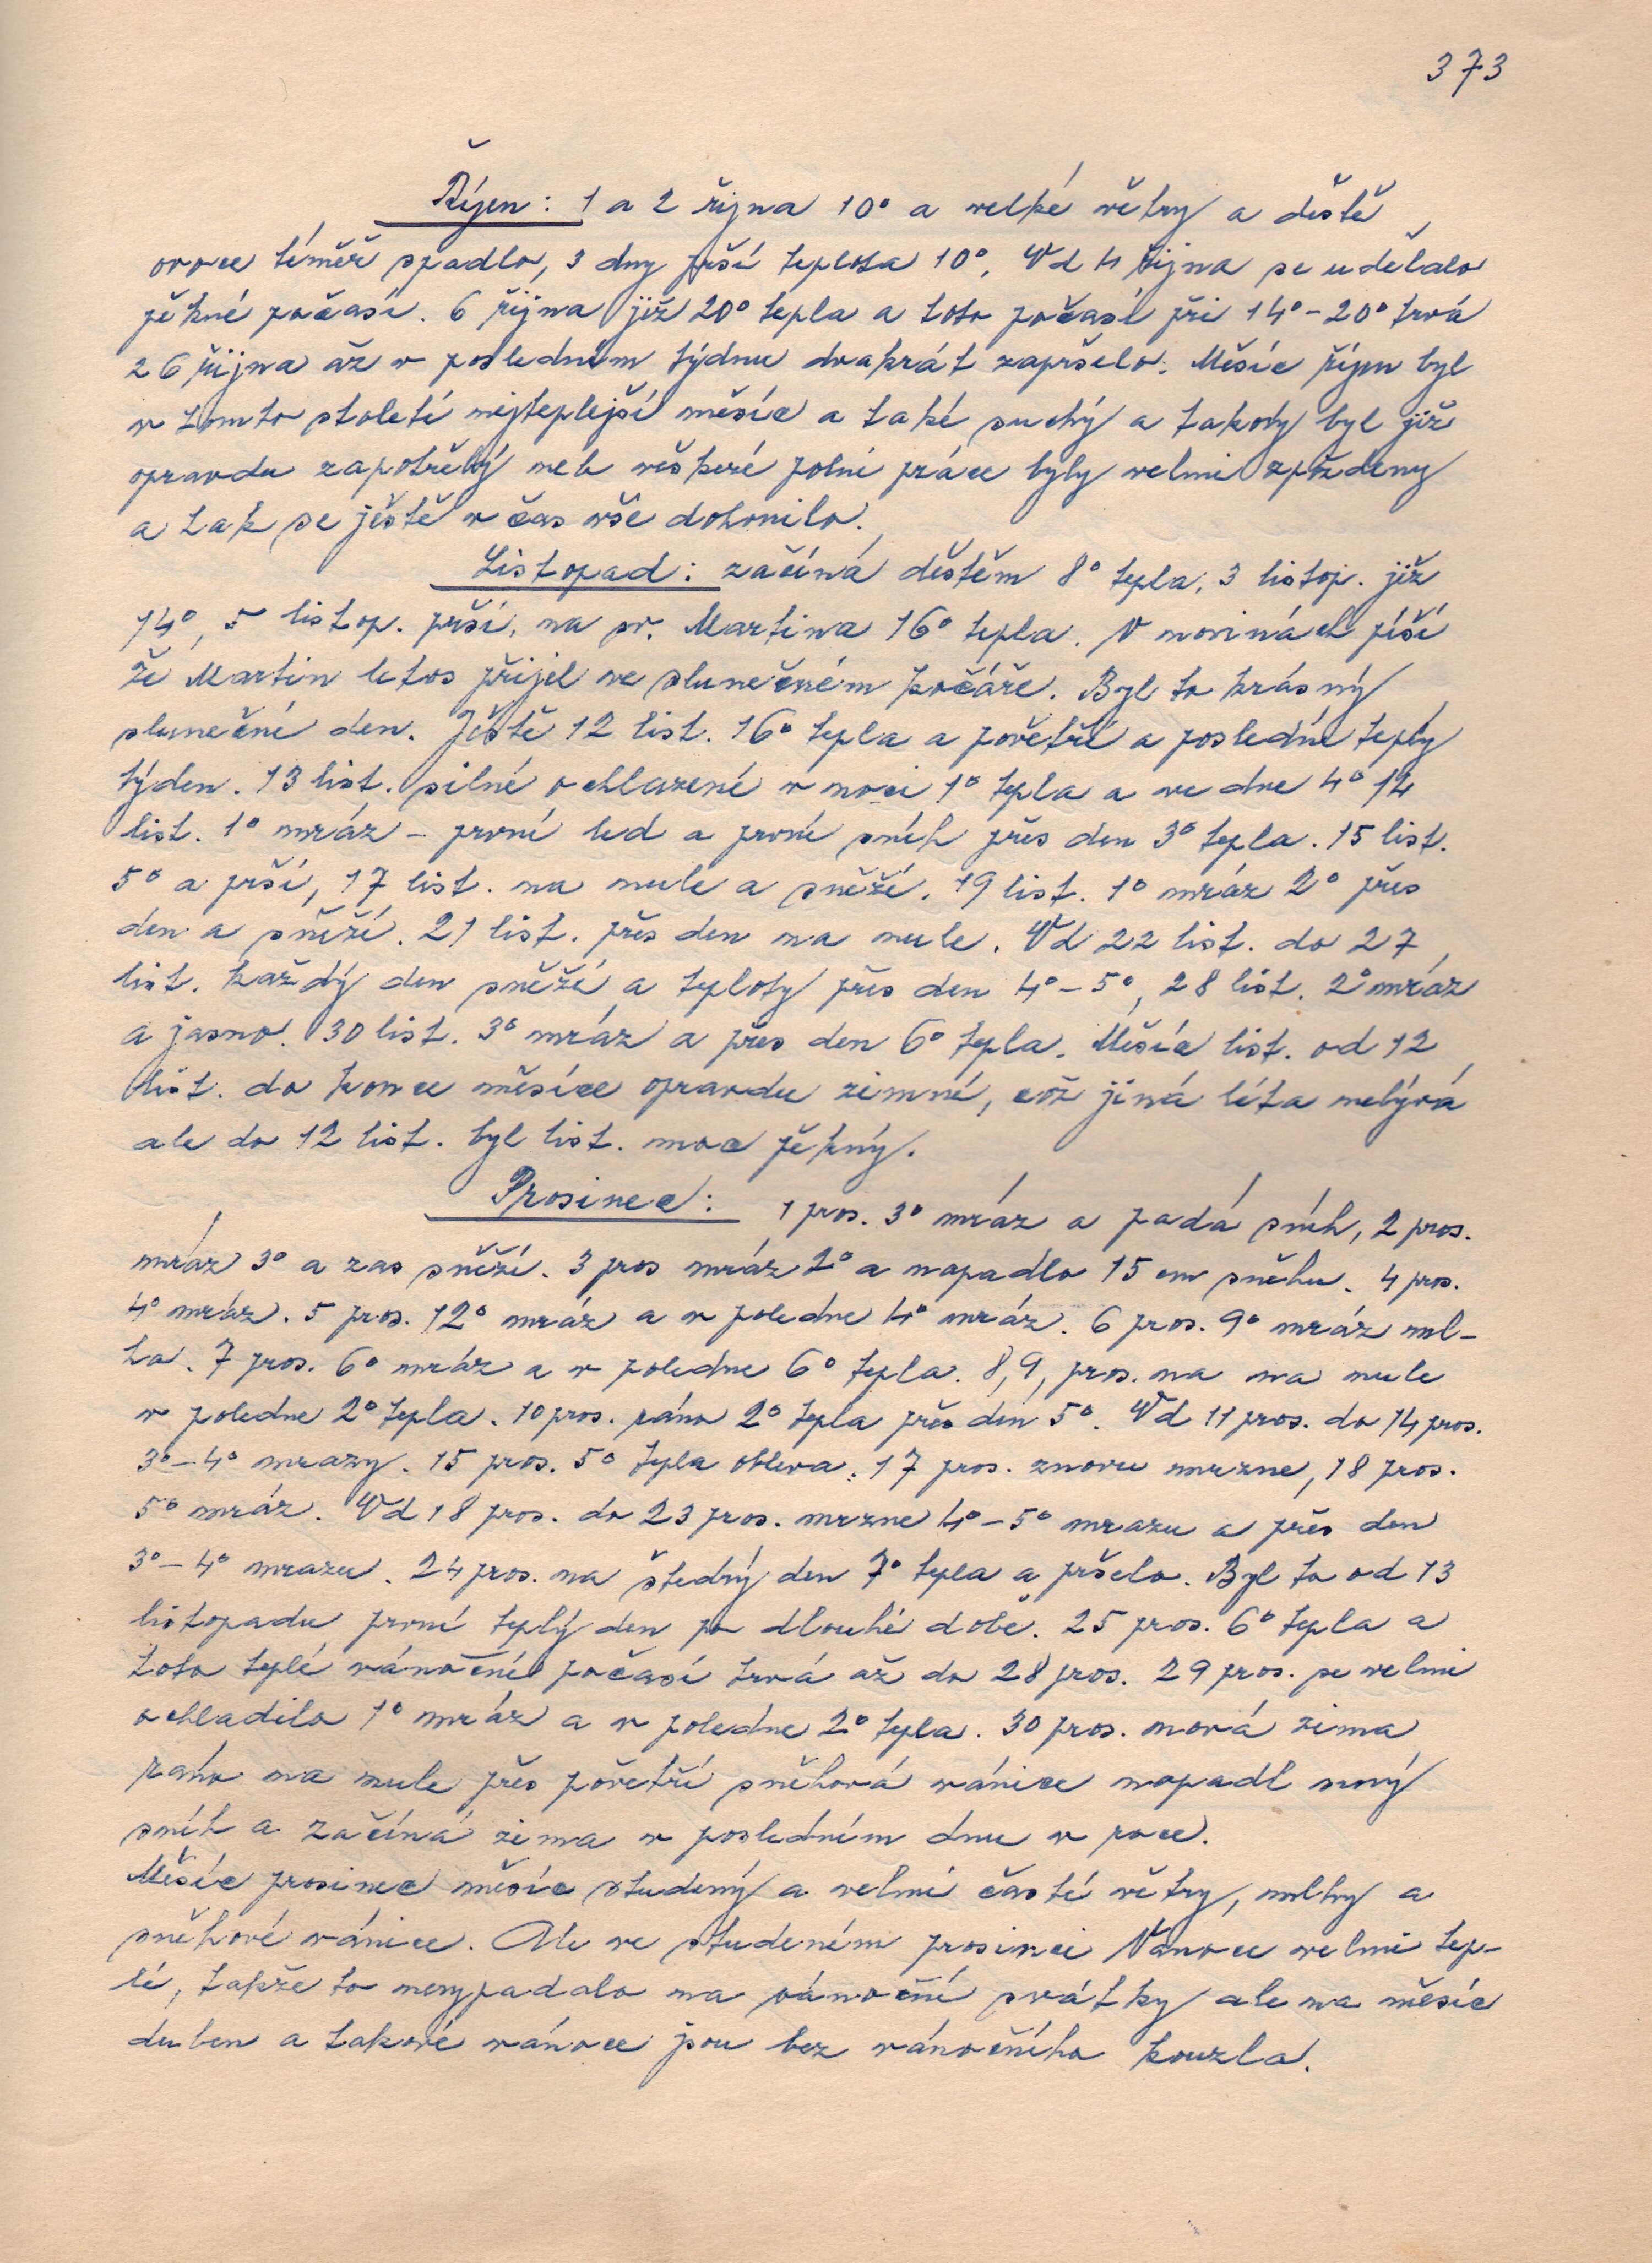 373
Říjen: 1 a 2 října 10° a velké větry a deště
ovoce téměř spadlo, 3 dny prší teplota 10°. Od 4 října se udělalo
pěkné počasí. 6 října již 20° tepla a toto počasí při 14°-20° trvá
26 října až v posledním týdnu dvakrát zapršelo. Měsíc říjen byl
v tomto století nejteplejší měsíc a také suchý a takový byl již
opravdu zapotřebý neb veškeré polní práce byly velmi zpožděny
a tak se ještě v čas vše dohonilo.
Listopad: začíná deštěm 8° tepla, 3 listop. již
14°, 5 listop. prší, na sv. Martina 16° tepla. V novinách píší
že Martin letos přijel ve slunečném kočáře. Byl to krásný
slunečné den. Ještě 12 list. 16° tepla a povětří a poslední teplý
týden. 13 list. silné ochlazené v noci 1° tepla a ve dne 4° 14
list. 1° mráz - první led a první sníh přes den 3° tepla. 15 list.
5° a prší, 17 list. na nule a sněží. 19 list. 1° mráz 2° přes
den a sněží. 21 list. přes den na nule. Od 22 list. do 27
list. každý den sněží a teploty přes den 4°-5°, 28 list. 2° mráz
a jasno. 30 list. 3° mráz a přes den 6° tepla. Měsíc list. od 12
list. do konce měsíce opravdu zimní, což jiná léta nebývá
ale do 12 list. byl list. moc pěkný.
Prosinec: 1 pros. 3° mráz a padá sníh, 2 pros.
mráz 3° a zas sněží. 3 pros mráz 2° a napadlo 15 cm sněhu. 4 pros.
4° mráz. 5 pros. 12° mráz a v poledne 4° mráz. 6 pros. 9° mráz ml-
ha. 7 pros. 6° mráz a v poledne 6° tepla. 8, 9, pros. na na nule
v poledne 2° tepla. 10 pros. ráno 2° tepla přes den 5°. Od 11 pros. do 14 pros.
3°-4° mrazy. 15 pros. 5° tepla obleva. 17 pros. znovu mrzne, 18 pros.
5° mráz. Od 18 pros. do 23 pros. mrzne 4°-5° mrazu a přes den
3°-4° mrazu. 24 pros. na štedrý den 7° tepla a pršelo. Byl to od 13
listopadu první teplý den po dlouhé době. 25 pros. 6° tepla a
toto teplé vánoční počasí trvá až do 28 pros. 29 pros. se velmi
ochladilo 1° mráz a v poledne 2° tepla. 30 pros. nová zima
ráno na nule přes povětří sněhová vánice napadl nový
sníh a začíná zima v posledním dnu v roce.
Měsíc prosinec měsíc studený a velmi časté větry, mlhy a
sněhové vánice. Ale ve studeném prosinci Vánoce velmi tep-
lé, takže to nevypadalo na vánoční svátky ale na měsíc
duben a takové vánoce jsou bez vánočního kouzla.